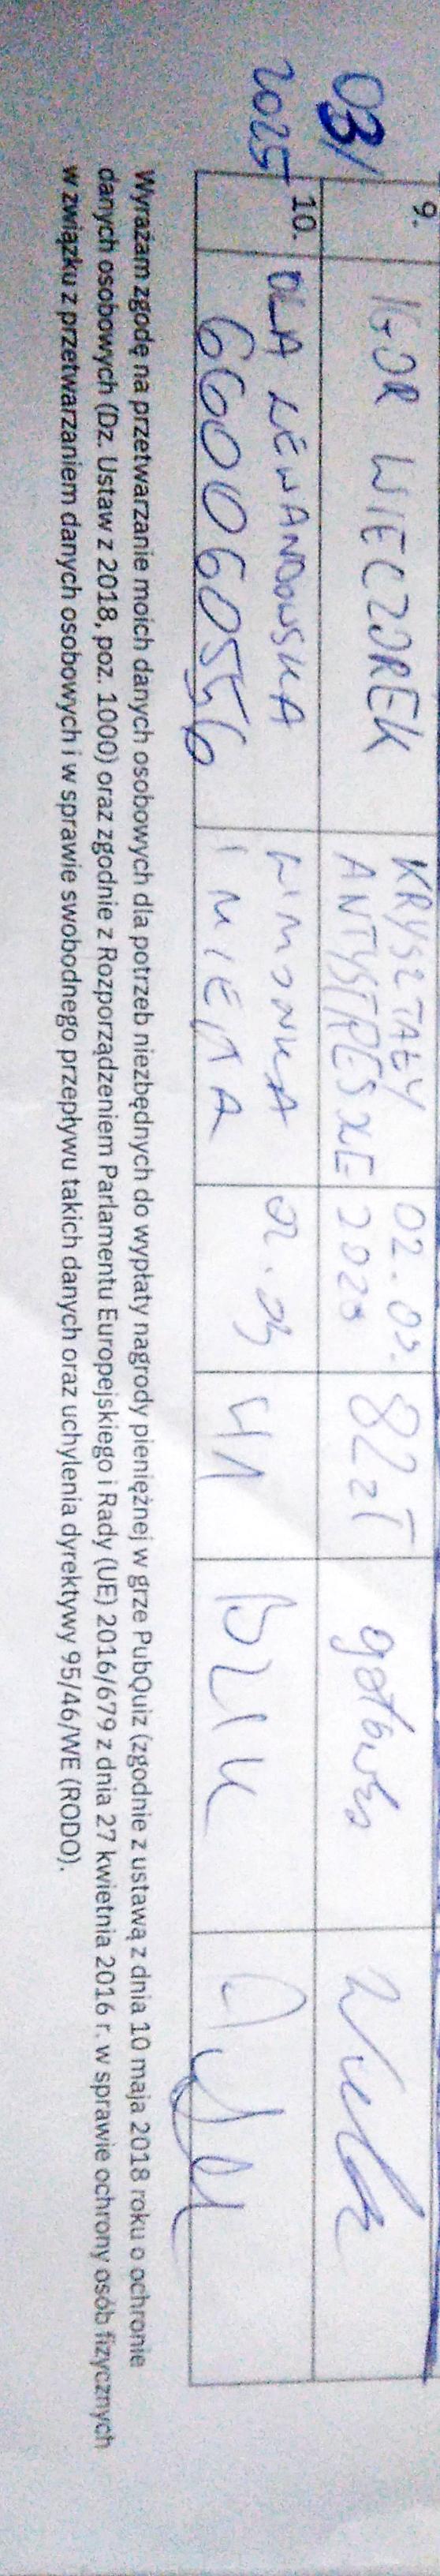 03/
2025
9.
IGOR WIECZOREK
KRYSZTAŁY
ANTYSTRESXE
02.03.
2025
82zł
gotówka
10.
OLA LEWANDOWSKA
660060556
LIMONKA
I MIĘTA
02.03
41
BLIK
Wyrażam zgodę na przetwarzanie moich danych osobowych dla potrzeb niezbędnych do wypłaty nagrody pieniężnej w grze PubQuiz (zgodnie z ustawą z dnia 10 maja 2018 roku o ochronie
danych osobowych (Dz. Ustaw z 2018, poz. 1000) oraz zgodnie z Rozporządzeniem Parlamentu Europejskiego i Rady (UE) 2016/679 z dnia 27 kwietnia 2016 r. w sprawie ochrony osób fizycznych
w związku z przetwarzaniem danych osobowych i w sprawie swobodnego przepływu takich danych oraz uchylenia dyrektywy 95/46/WE (RODO).